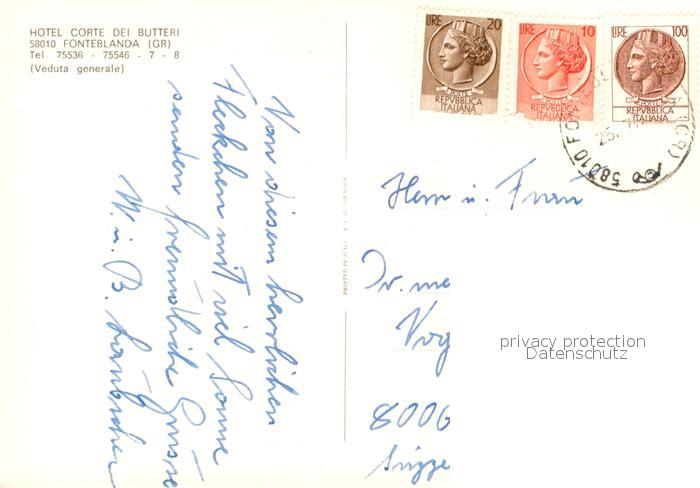 HOTEL CORTE DEI BUTTERI
58010 FONTEBLANDA (GR)
Tel. 75536 - 75546 - 7 - 8
(Veduta generale)
Von diesem herrlichen
Fleckchen mit viel Sonne
senden freundliche Grüsse
W. u. B.
PRINTED IN ITALY
LIRE 20
POSTE
REPVBBLICA
ITALIANA
LIRE 10
POSTE
REPVBBLICA
ITALIANA
LIRE 100
POSTE
REPVBBLICA
ITALIANA
58010 (GR)
25.
Herrn u. Frau
Dr. me
Vog
8006
privacy protection
Datenschutz